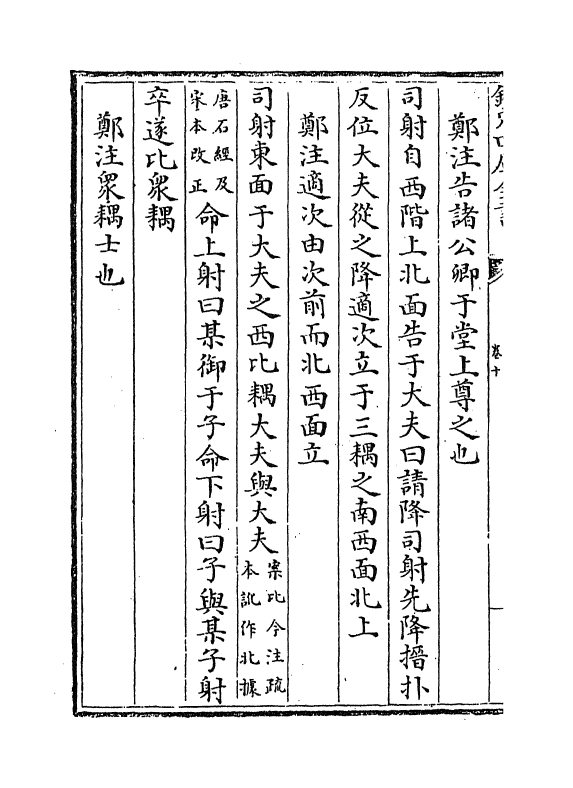 鄭注告諸公卿于堂上尊之也
司射自西階上北面告于大夫曰請降司射先降搢扑
反位大夫從之降適次立于三耦之南西面北上
鄭注適次由次前而北西面立
司射東面于大夫之西比耦大夫與大夫案比今注疏本訛作北據
唐石經及宋本改正命上射曰某御于子命下射曰子與某子射
卒遂比衆耦
鄭注衆耦士也
卷十